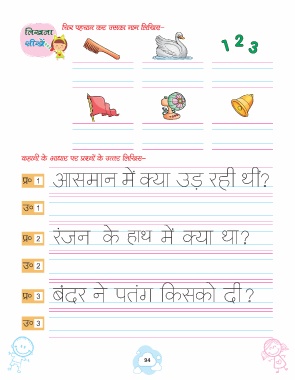 लिखना
सीखें
चित्र पहचान कर उसका नाम लिखिए-
1 2 3
कहानी के आधार पर प्रश्नों के उत्तर लिखिए-
प्र० 1 आसमान में क्या उड़ रही थी?
उ० 1
प्र० 2 रंजन के हाथ में क्या था?
उ० 2
प्र० 3 बंदर ने पतंग किसको दी?
उ० 3
94